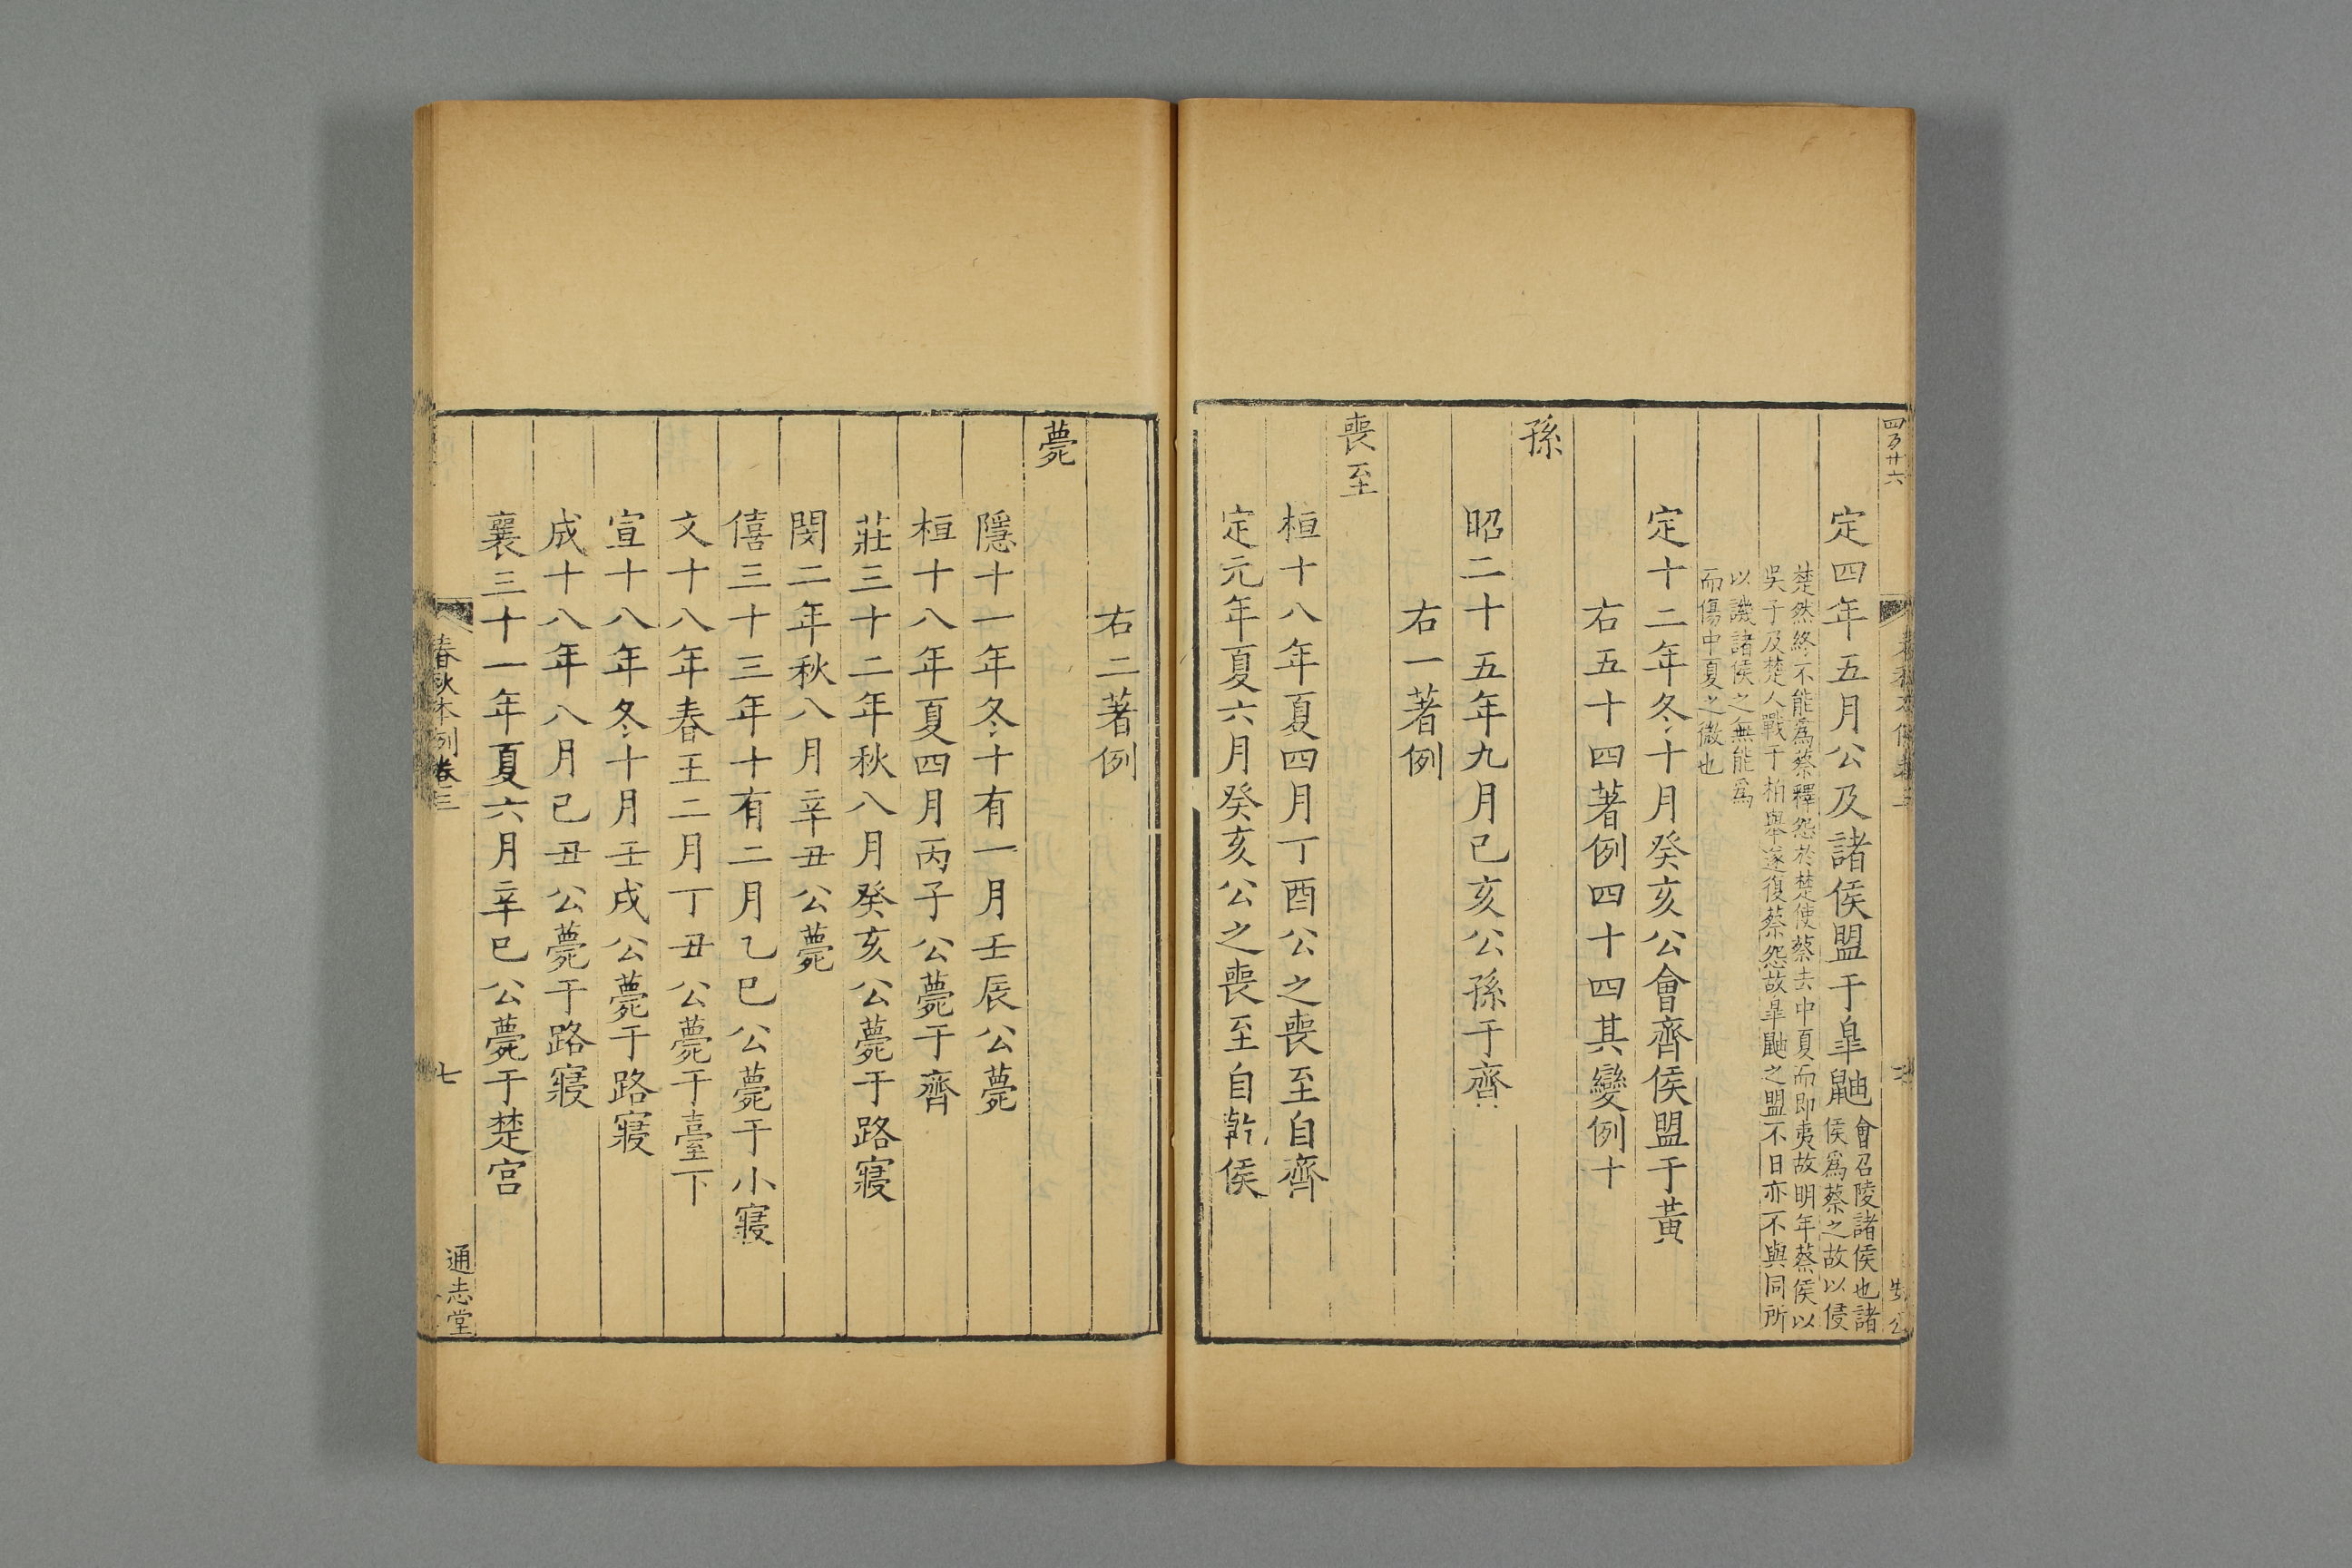 定四年五月公及諸侯盟于臯鼬會召陵諸侯也諸侯爲蔡之故以侵
楚然終不能爲蔡釋怨於楚使蔡去中夏而即夷故明年蔡侯以
吳子及楚人戰于柏舉遂復蔡怨故臯鼬之盟不日亦不與同所
以譏諸侯之無能爲
而傷中夏之微也
定十二年冬十月癸亥公會齊侯盟于黃
右五十四著例四十四其變例十
孫
昭二十五年九月己亥公孫于齊
右一著例
喪至
桓十八年夏四月丁酉公之喪至自齊
定元年夏六月癸亥公之喪至自乾侯
右二著例
薨
隱十一年冬十有一月壬辰公薨
桓十八年夏四月丙子公薨于齊
莊三十二年秋八月癸亥公薨于路寢
閔二年秋八月辛丑公薨
僖三十三年十有二月乙巳公薨于小寢
文十八年春王二月丁丑公薨于臺下
宣十八年冬十月壬戌公薨于路寢
成十八年八月己丑公薨于路寢
襄三十一年夏六月辛巳公薨于楚宮
春秋本例卷三
七
通志堂